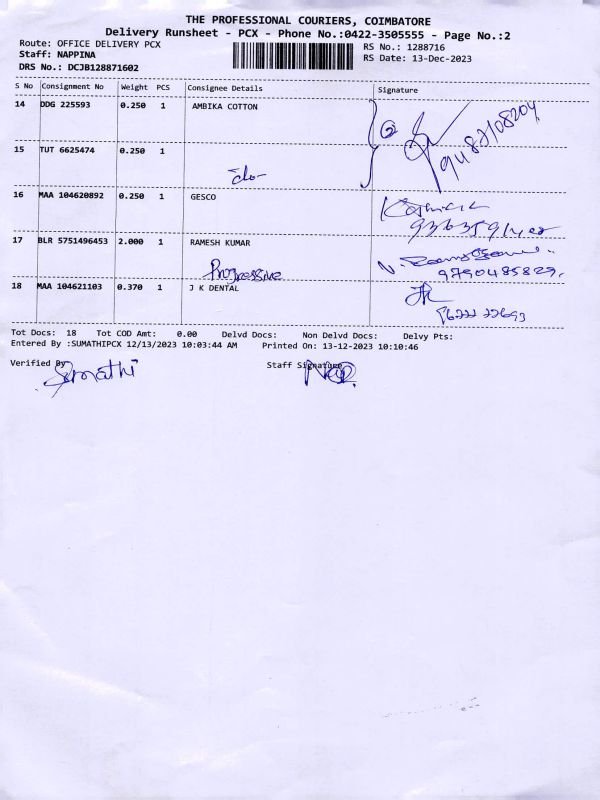 THE PROFESSIONAL COURIERS, COIMBATORE
Delivery Runsheet - PCX - Phone No.:0422-3505555 - Page No.:2
Route: OFFICE DELIVERY PCX
Staff: NAPPINA
DRS No.: DCJB128871602
RS No.: 1288716
RS Date: 13-Dec-2023
S No Consignment No Weight PCS Consignee Details Signature
14 DDG 225593 0.250 1 AMBIKA COTTON
2
9487108204
15 TUT 6625474 0.250 1
-do-
16 MAA 104620892 0.250 1 GESCO
17 BLR 5751496453 2.000 1 RAMESH KUMAR
Progressive
9790485829.
18 MAA 104621103 0.370 1 J K DENTAL
Tot Docs: 18 Tot COD Amt: 0.00 Delvd Docs: Non Delvd Docs: Delvy Pts:
Entered By :SUMATHIPCX 12/13/2023 10:03:44 AM Printed On: 13-12-2023 10:10:46
Verified By Staff Signature
Sumathi